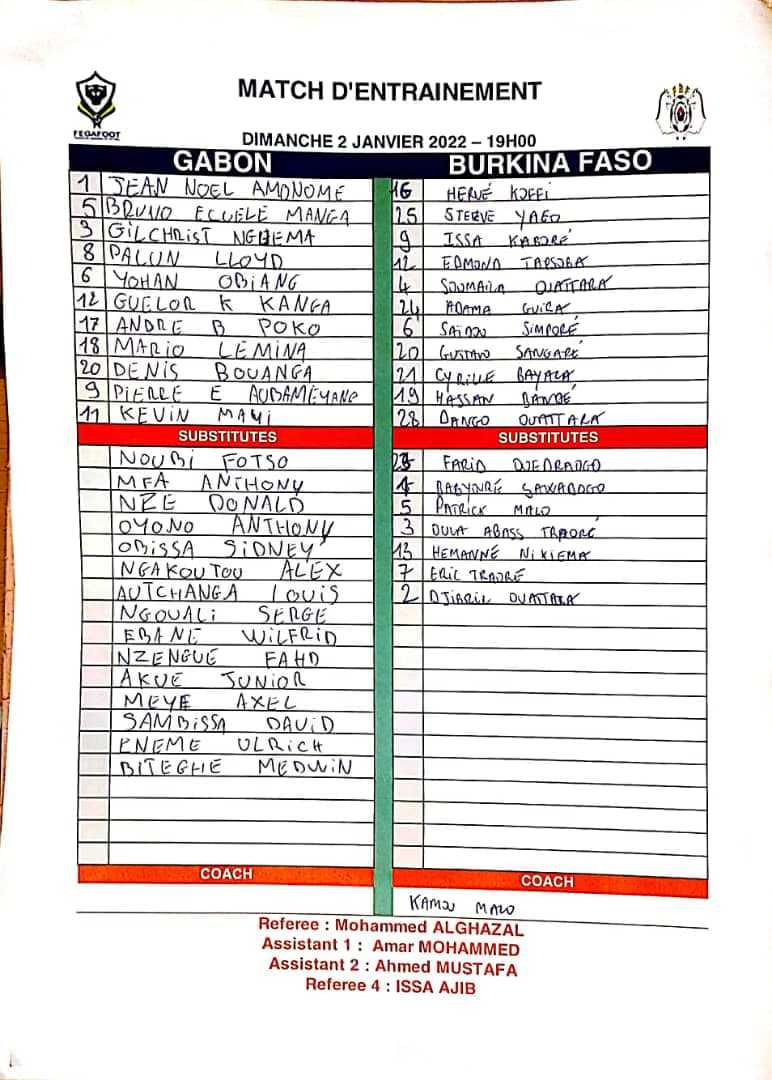 MATCH D'ENTRAINEMENT
FEGAFOOT
FBF
DIMANCHE 2 JANVIER 2022 – 19H00
GABON
1 JEAN NOEL AMONOME
5 BRUNO ECUELE MANGA
3 GILCHRIST NGUEMA
8 PALUN LLOYD
6 YOHAN OBIANG
12 GUELOR K KANGA
17 ANDRE B POKO
18 MARIO LEMINA
20 DENIS BOUANGA
9 PIERRE E AUBAMEYANG
11 KEVIN MAYI
SUBSTITUTES
NOUBI FOTSO
MFA ANTHONY
NZE DONALD
OYONO ANTHONY
OBISSA SIDNEY
NGAKOUTOU ALEX
AUTCHANGA LOUIS
NGOUALI SERGE
EBANE WILFRID
NZENGUE FAHD
AKUE JUNIOR
MEYE AXEL
SAMBISSA DAVID
ENEME ULRICH
BITEGHE MEDWIN
COACH
BURKINA FASO
16 HERVÉ KOFFI
25 STEEVE YAGO
9 ISSA KABORÉ
12 EDMOND TAPSOBA
4 SOUMAILA OUATTARA
24 ADAMA GUIRA
6 SAIDOU SIMPORÉ
20 GUSTAVO SANGARÉ
21 CYRILLE BAYALA
19 HASSAN BANDÉ
28 DANGO OUATTARA
SUBSTITUTES
FARID OUEDRAOGO
BABYOURÉ SAWADOGO
5 PATRICK MALO
3 OULA ABASS TRAORÉ
13 HEMANNÉ NIKIEMA
7 ERIC TRAORÉ
2 DJIBRIL OUATTARA
COACH
KAMOU MALO
Referee : Mohammed ALGHAZAL
Assistant 1 : Amar MOHAMMED
Assistant 2 : Ahmed MUSTAFA
Referee 4 : ISSA AJIB